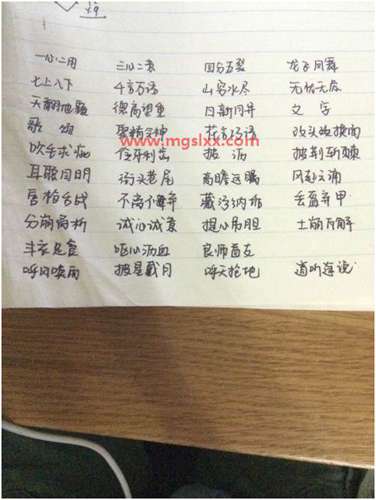 一心二用 三心二意 四分五裂 龙飞凤舞
七上八下 千言万语 山穷水尽 无忧无虑
天翻地覆 德高望重 日新月异
歌颂 聚精会神 花言巧语 改头换面
www.mgslxx.com
吹毛求疵 伶牙利齿 披沥 披荆斩棘
耳聪目明 街头巷尾 高瞻远瞩 风起云涌
唇枪舌战 不屑一顾 藏污纳垢 丢盔弃甲
分崩离析 诚心诚意 提心吊胆 土崩瓦解
丰衣足食 呕心沥血 良师益友
呼风唤雨 披星戴月 呼天抢地 道听途说